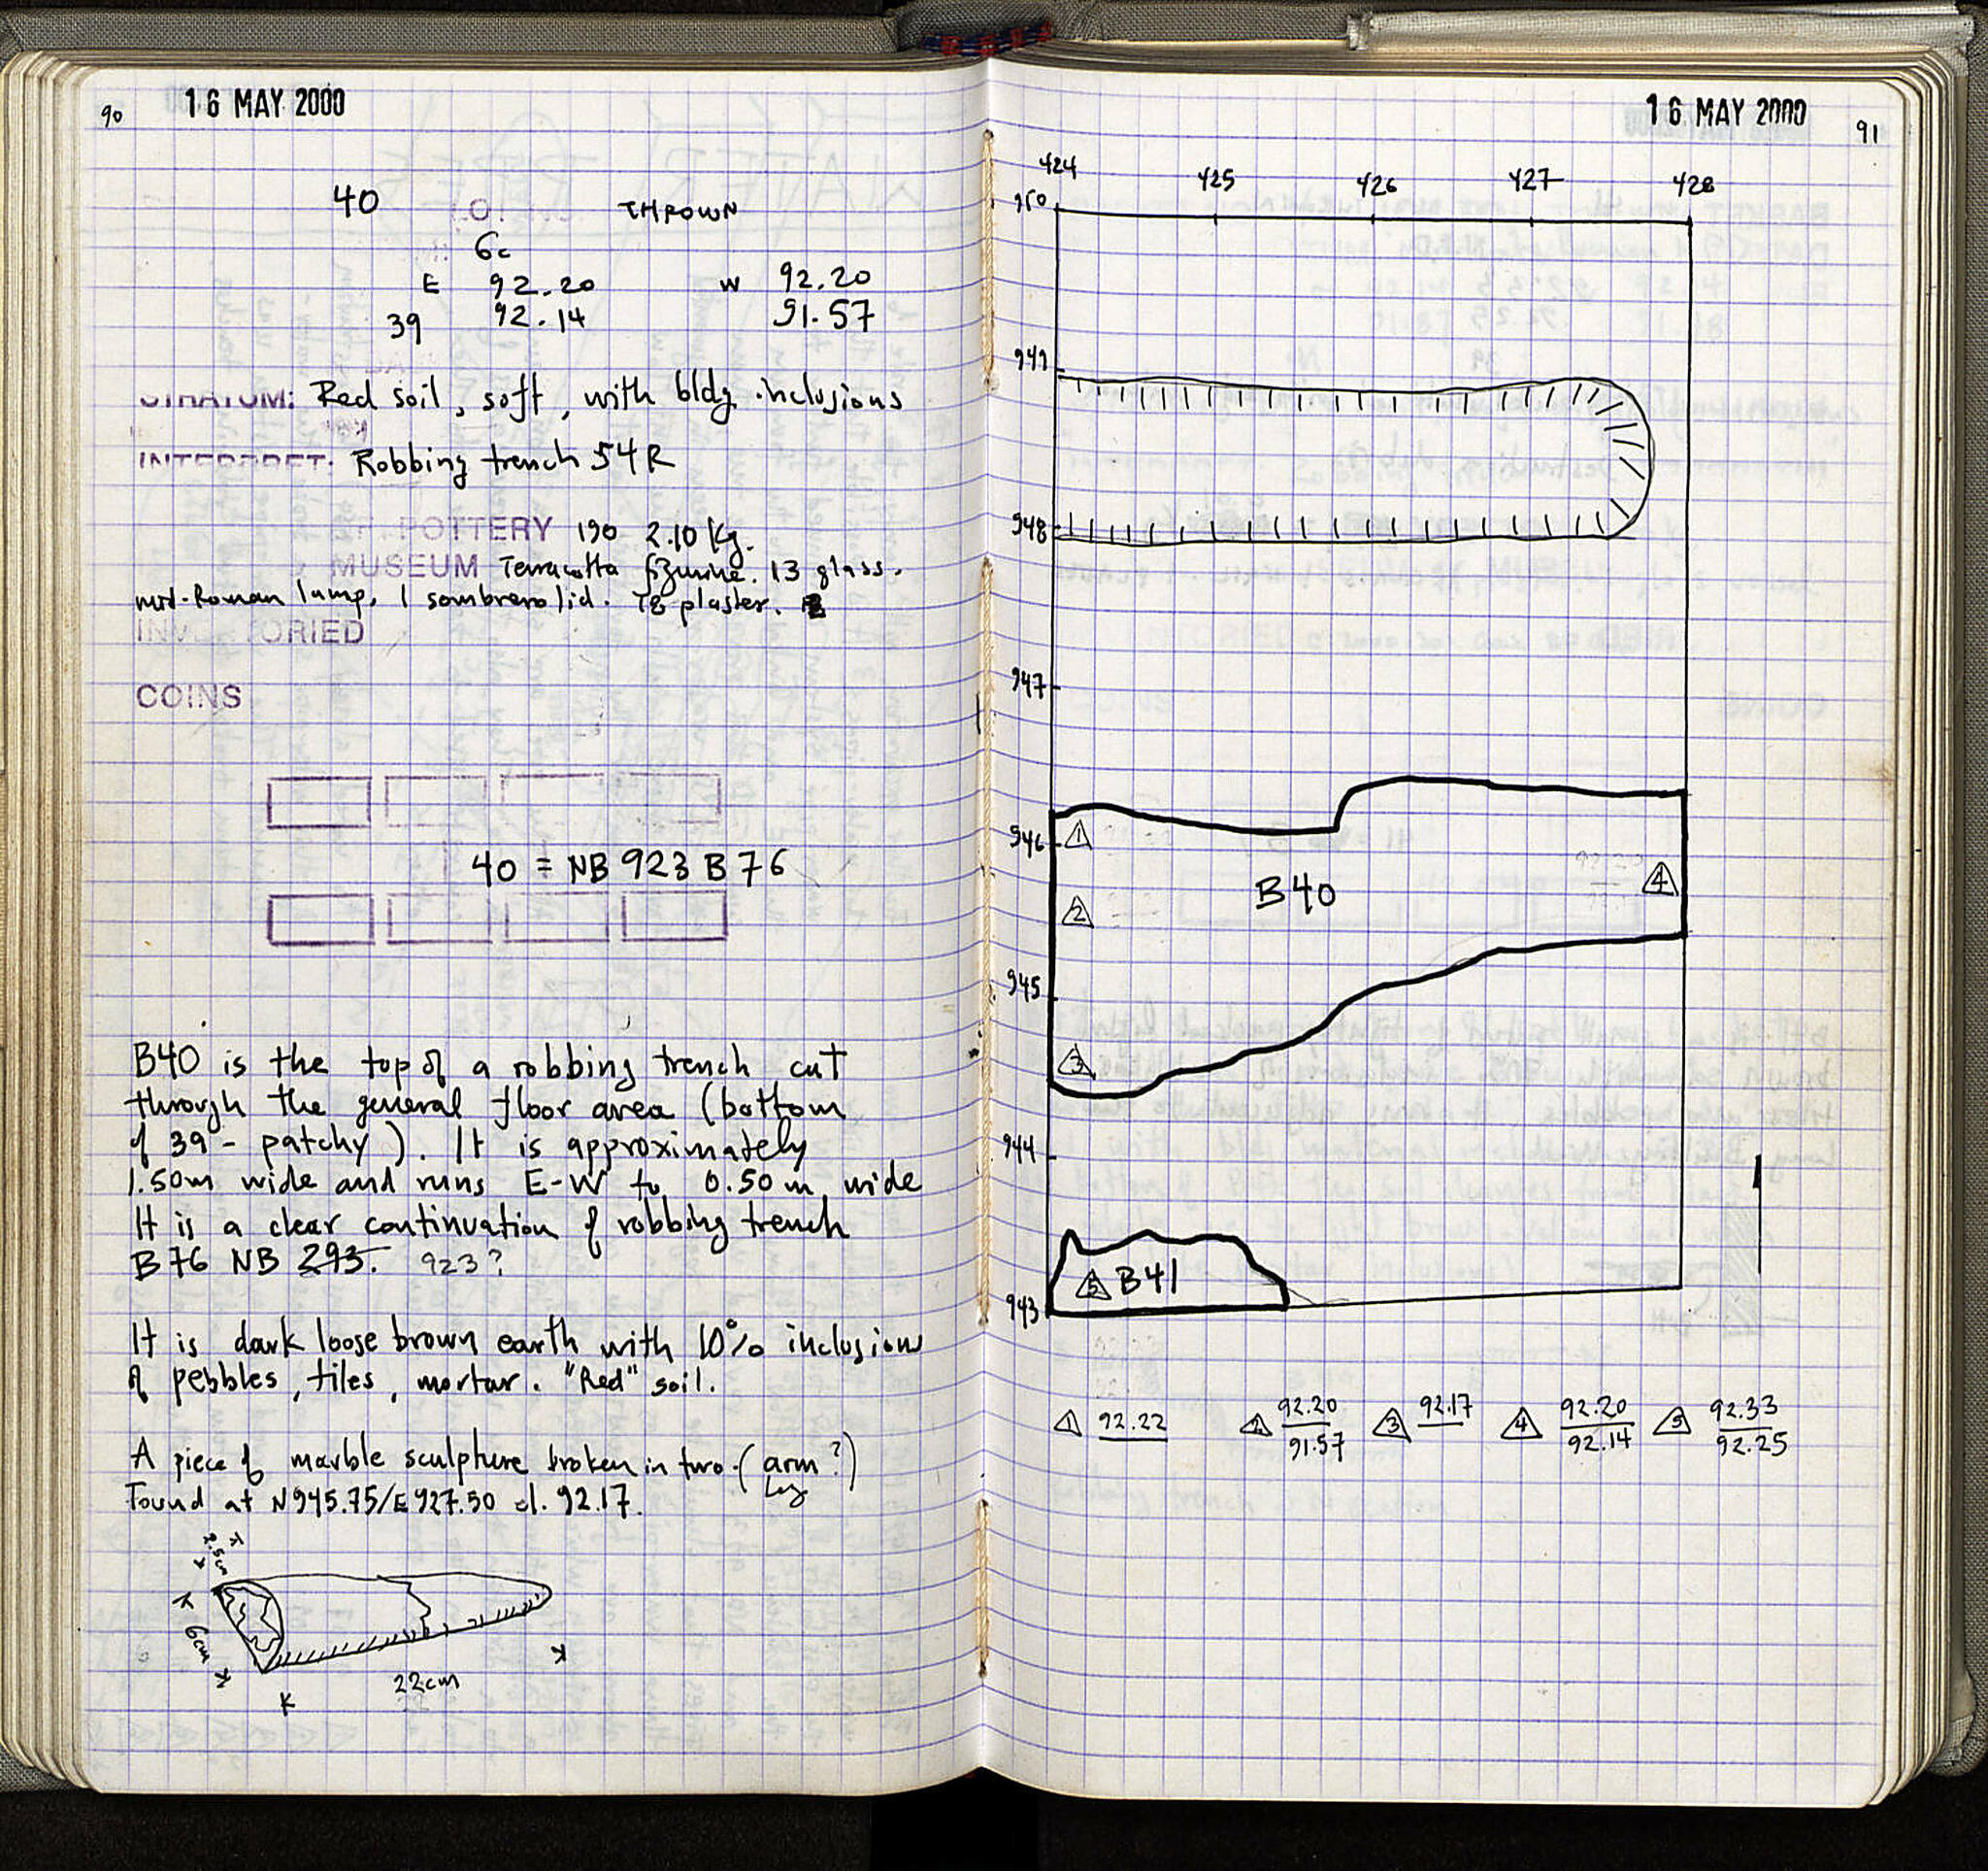 90
16 MAY 2000
40 THROWN
6c
E 92.20 W 92.20
39 92.14 91.57
STRATUM: Red soil, soft, with bldg. inclusions
INTERPRET: Robbing trench 54R
POTTERY 190 2.10 Kg.
MUSEUM Terracotta figurine. 13 glass.
mid-Roman lamp, 1 sombrero lid. 78 plaster.
INVENTORIED
COINS
40 = NB 923 B 76
B40 is the top of a robbing trench cut
through the general floor area (bottom
of 39 - patchy). It is approximately
1.50m wide and runs E-W to 0.50 m wide
It is a clear continuation of robbing trench
B76 NB 293. 923?
It is dark loose brown earth with 10% inclusions
of pebbles, tiles, mortar. "Red" soil.
A piece of marble sculpture broken in two. (arm?)
leg
Found at N945.75/E927.50 el. 92.17.
2.5cm
6cm
22cm
16 MAY 2000
91
424 425 426 427 428
950
949
948
947
946
945
944
943
1
2
3
B40
4
5 B41
1 92.22 2 92.20 3 92.17 4 92.20 5 92.33
91.57 92.14 92.25